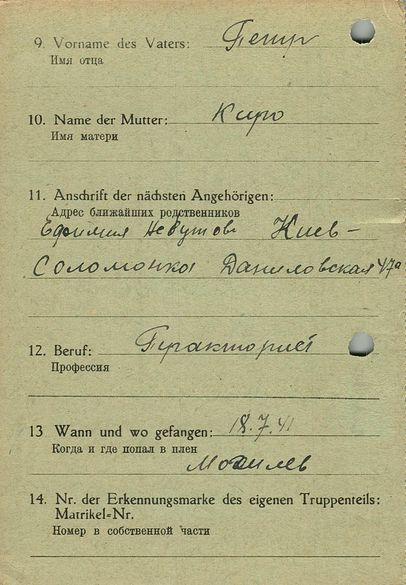 9. Vorname des Vaters: Петр
Имя отца
10. Name der Mutter: Киро
Имя матери
11. Anschrift der nächsten Angehörigen:
Адрес ближайших родственников
Ефимия Киев-
Соломонка Даниловская 47а
12. Beruf: Тракторист
Профессия
13 Wann und wo gefangen: 18.7.41
Когда и где попал в плен
Могилев
14. Nr. der Erkennungsmarke des eigenen Truppenteils:
Matrikel=Nr.
Номер в собственной части